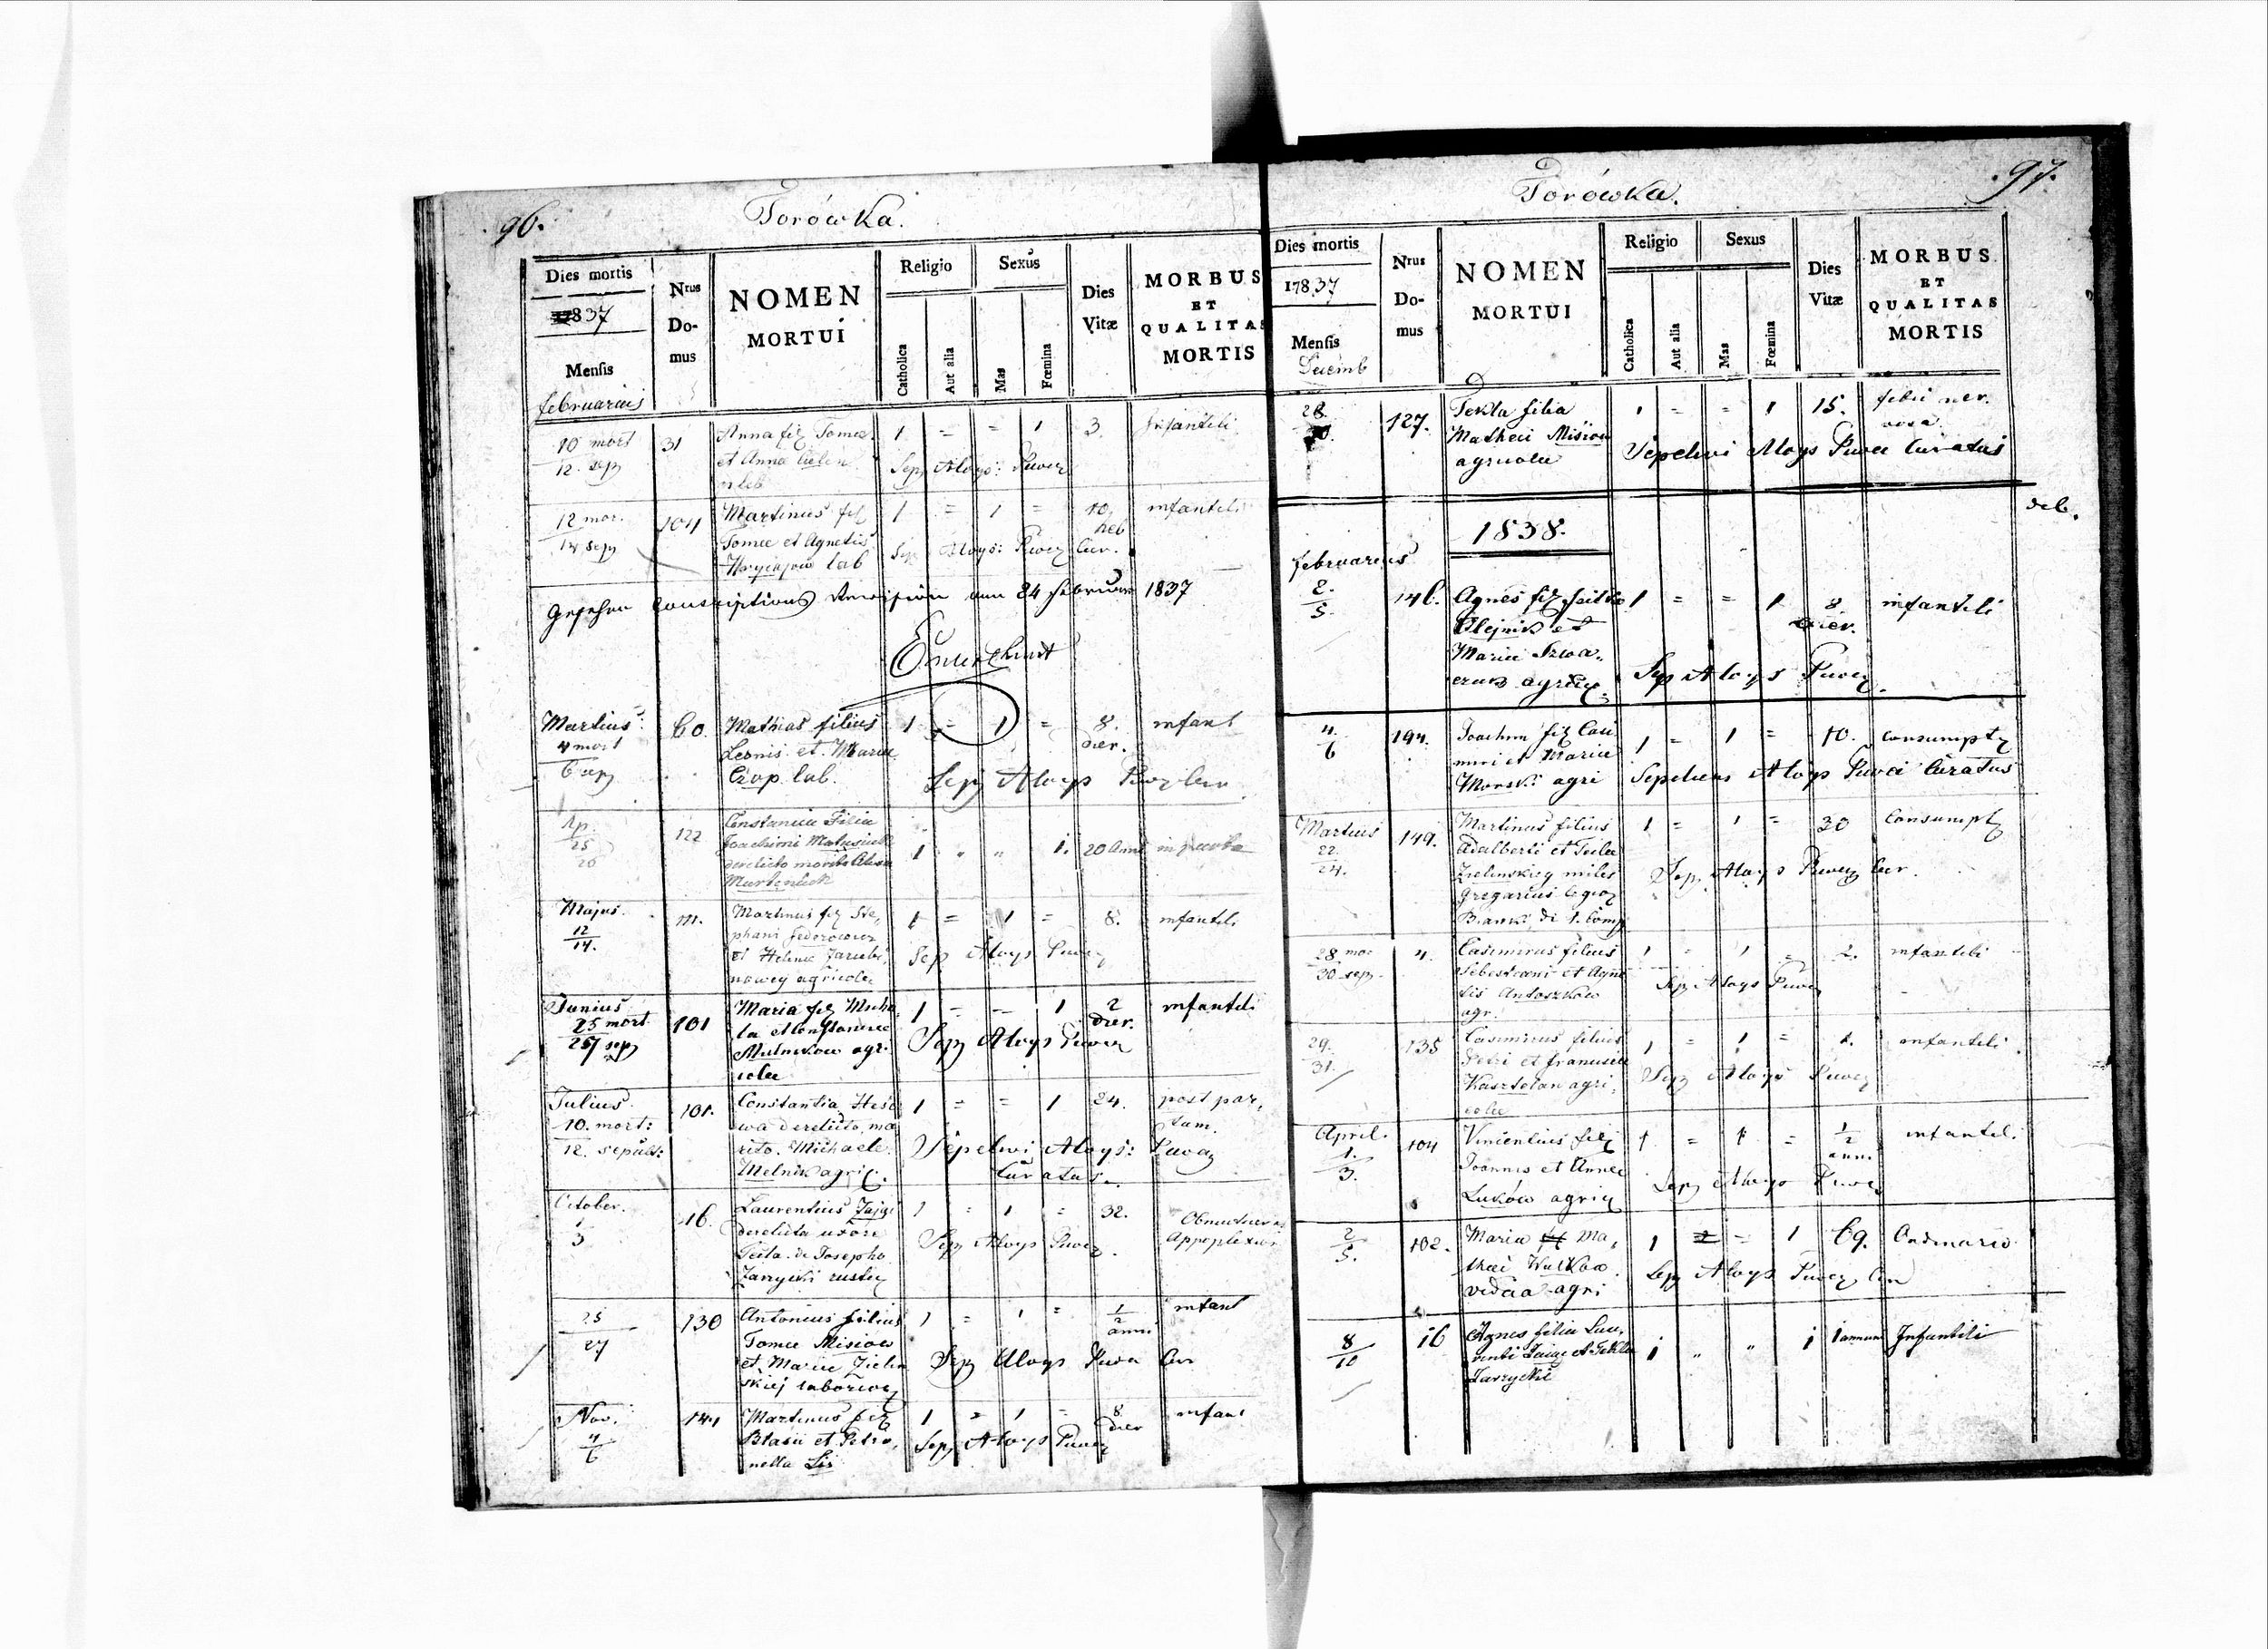 96.
Torówka.
Dies mortis
1837
Mensis
februarius
Nrus
Do-
mus
NOMEN
MORTUI
Religio
Catholica
Aut alia
Sexus
Mas
Fœmina
Dies
Vitæ
MORBUS
ET
QUALITAS
MORTIS
10 mort
12. sep
31
Anna fil Tomae
et Anna
1 = = 1 3. Infantili
Sep Aloys: Puwcz
12 mor.
14 sep
104
Martinus fil
Tomae et Agnetis
lab
1 = 1 = 10. infantili
Sep Aloys: Puwcz Cur.
Gesehen Conscriptions Revision am 24 februar 1837
Martius
4 mort
6 sep
60.
Mathias filius
Leonis et Mariae
Czop lab.
1 = 1 = 8. infant
dier.
Sep Aloys Puwcz Cur
Ap.
25
26
122
Constancia Filia
Joachimi Matusiak
derelicto marito
Martiniuk
1 " " 1. 20 Anni
Majus.
12
14.
111.
Martinus fil Ste,
phani Fedorowicz
et Helenae Jarubi,
nowey agricolae
1 = 1 = 8. infantili
Sep Aloys Puwcz
Junius
25 mort
27 sep
101
Maria fil Micha
la et Constanciae
Mulnikow agri
colae
1 = = 1 2 infantili
dier.
Sep Aloys Puwcz
Julius
10. mort:
12. sepult:
101.
Constantia
derelicto, ma
rito. Michaele
Melnik agric.
1 = = 1 24. post par,
tum.
Sepelivi Aloys: Puwcz
Curatus.
October.
1
3
16.
Laurentius Jajgi
derelicta uxore
Tecla de Josepho
Zarzycki rustic
1 = 1 = 32.
Appoplexia
Sep Aloys Puwcz.
25
27
130
Antonius filius
Tomae Misiow
et Mariae Zielin
skiej
1 = 1 = 1/2 infant
anni
Sep Aloys Puwcz Cur
Nov.
4
6
141
Martinus fil
Blasii et Petro,
nella Lis
1 = 1 = 8 infant
dier
Sep Aloys Puwcz
97.
Torówka.
Dies mortis
17837
Mensis
Decemb
Nrus
Do-
mus
NOMEN
MORTUI
Religio
Catholica
Aut alia
Sexus
Mas
Fœmina
Dies
Vitæ
MORBUS
ET
QUALITAS
MORTIS
28.
30.
127.
Tekla filia
Mathei Misiow
agricolae
1 = = 1 15. febri ner.
vosa
Sepelivi Aloys Puwcz Curatus
deb.
1838.
februarius
2.
5.
146.
Agnes fil
Olejnik et
Mariae
agric.
1 = = 1 8. infantili
dier.
Sep Aloys Puwcz.
4
6
194.
Joachim fil Casi
miri et Mariae
Morski agri
1 = 1 = 10. consumpt
Sepeliens Aloys Puwcz Curatus
Martius
22.
24.
149.
Martinus filius
Adalberti et Teclae
Zielinskich miles
gregarius
1 = 1 = 30 Consumpt
Sep Aloys Puwcz Cur.
28 mor
30 sep
4.
Casimirus filius
Sebestiani et Agne
tis Antoszkow
agr.
1 = 1 = 2. infantili
Sep Aloys Puwcz
29.
31.
135
Casimirus filius
Petri et Franciscae
Kasztelan agri,
colae
1 = 1 = 1. infantili.
Sep Aloys Puwcz
April.
1.
3.
104
Vincentius fil
Joannis et Annae
Luków agric
1 = 1 = 1/2 infantili
anni
Sep Aloys Puwcz
2
5.
102.
Maria Ma,
thei Kulkba
vidua agri
1 = = 1 69. Ordinario
Sep Aloys Puwcz Cur
8
10
16
Agnes filia Lau,
renti Jaigi et Tekla
Zarzycki
1 " " 1 1 annum Infantili